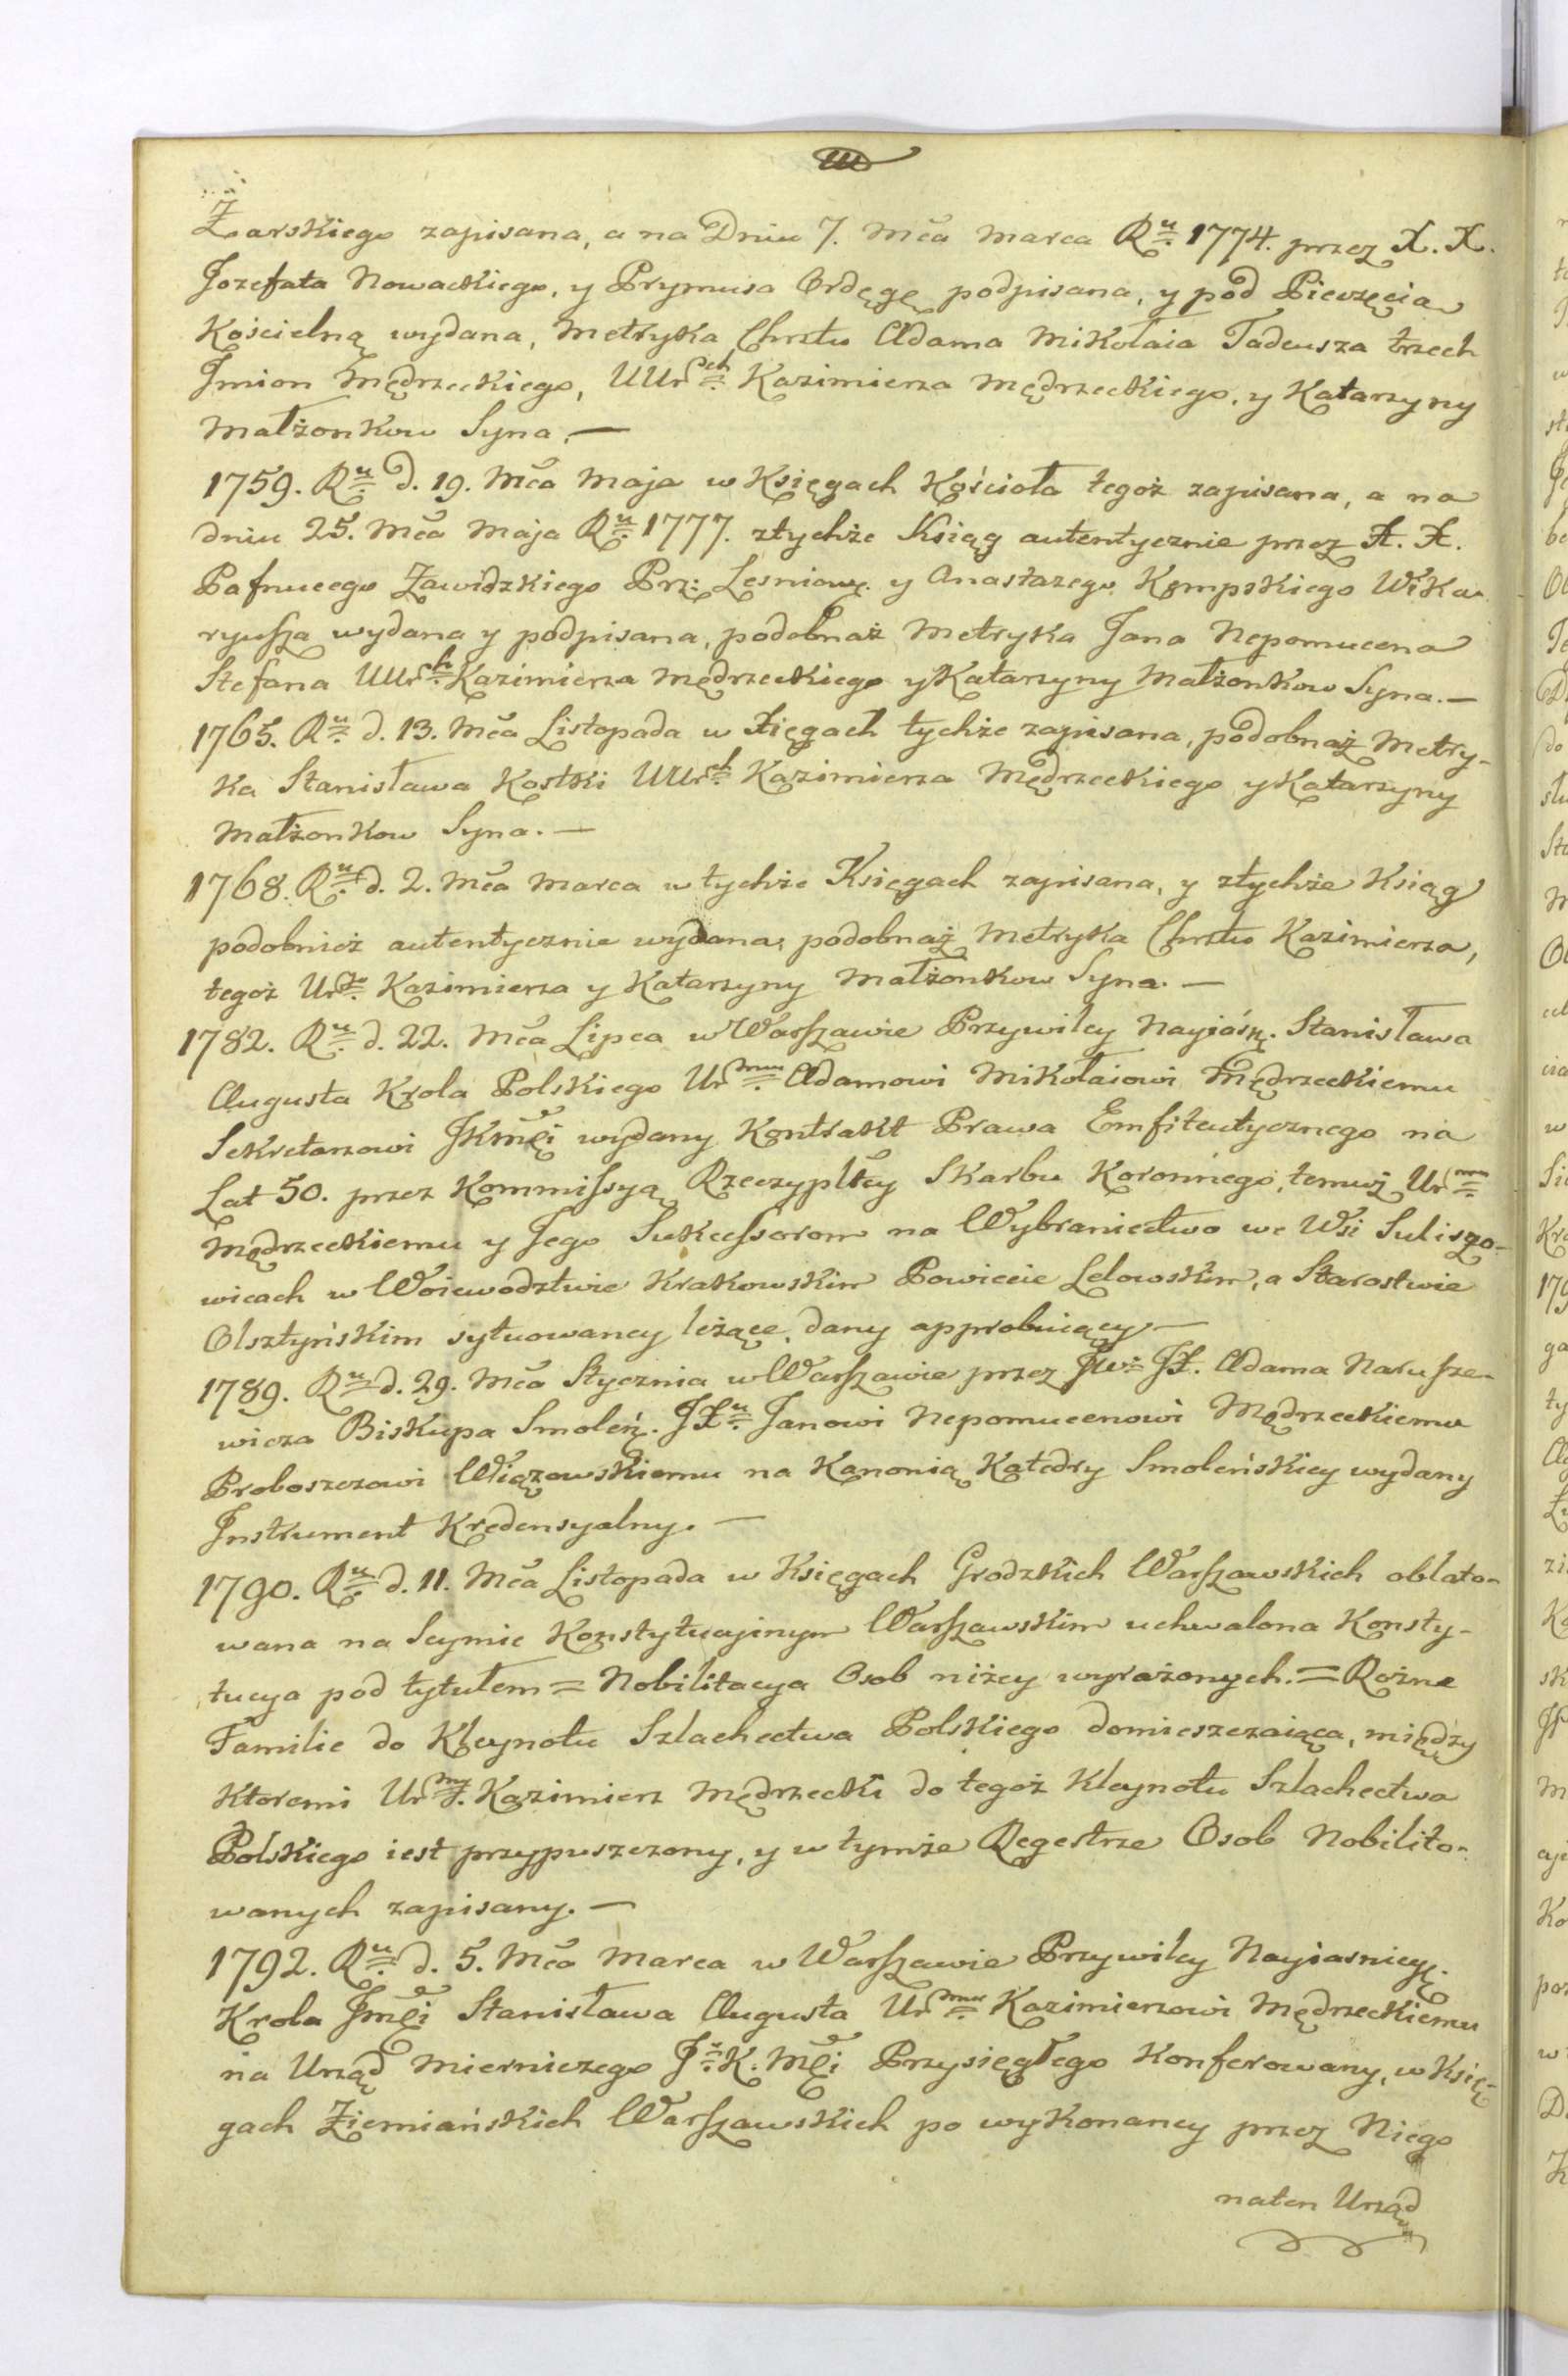 Żarskiego zapisana, a na Dniu 7. Mca Marca Ru 1774. przez X. X.
Jozefata Nowackiego, y Prymusa Ordęgę podpisana, y pod Pieczęcia
Kościelną wydana, Metryka Chrztu Adama Mikołaia Tadeusza trzech
Jmion Mędrzeckiego, UUrch Kazimierza Mędrzeckiego, y Katarzyny
Małżonkow Syna. —
1759. Ru d. 19. Mca Maja w Księgach Kościoła tegoż zapisana, a na
dniu 25. Mca Maja Ru 1777. ztychże Ksiąg autentycznie przez X. X.
Pafnucego Zawidzkiego Prz: Lesniow. y Anastazego Kempskiego Wika-
ryusza wydana y podpisana, podobnaż Metryka Jana Nepomucena
Stefana UUrch Kazimierza Mędrzeckiego y Katarzyny Małżonkow Syna. —
1765. Ru d. 13. Mca Listopada w Xięgach tychże zapisana, podobnaż Metry-
ka Stanisława Kostki UUrch Kazimierza Mędrzeckiego y Katarzyny
Małżonkow Syna. —
1768. Ru d. 2. Mca Marca w tychże Księgach zapisana, y ztychże Ksiąg
podobnież autentycznie wydana, podobnaż Metryka Chrztu Kazimierza,
tegoż Urgo Kazimierza y Katarzyny Małżonkow Syna. —
1782. Ru d. 22. Mca Lipca w Warszawie Przywiley Nayiaśn. Stanisława
Augusta Krola Polskiego Urmu Adamowi Mikołaiowi Mędrzeckiemu
Sekretarzowi JKmći wydany Kontrakt Prawa Emfiteutycznego na
Lat 50. przez Kommissyą Rzeczyplty Skarbu Koronnego, temuż Urmu
Mędrzeckiemu y Jego Sukcessorom na Wybraniectwo we Wsi Suliszo-
wicach w Woiewodztwie Krakowskim Powiecie Lelowskim, a Starostwie
Olsztyńskim sytuowaney leżące, dany approbuiący —
1789. Ru d. 29. Mca Stycznia w Warszawie przez JW: JX. Adama Narusze-
wicza Biskupa Smoleń. JXu Janowi Nepomucenowi Mędrzeckiemu
Proboszczowi Wiązowskiemu na Kanonią Katedry Smoleńskiey wydany
Jnstrument Kredensyalny. —
1790. Ru d. 11. Mca Listopada w Księgach Grodzkich Warszawskich oblato-
wana na Seymie Konstytucyjnym Warszawskim uchwalona Konsty-
tucya pod tytułem = Nobilitacya Osob niżey wyrażonych. = Rożne
Familie do Kleynotu Szlachectwa Polskiego domieszczaiąca, między
Ktoremi Urny. Kazimierz Mędrzecki do tegoż Kleynotu Szlachectwa
Polskiego iest przypuszczony, y w tymże Regestrze Osob Nobilito-
wanych zapisany. —
1792. Ru d. 5. Mca Marca w Warszawie Przywiley Nayiasniey.
Krola Jmći Stanisława Augusta Urmu Kazimierzowi Mędrzeckiemu
na Urząd Mierniczego J. K. Mći Przysięgłego Konferowany, w Księ-
gach Ziemiańskich Warszawskich po wykonaney przez Niego
naten Urząd